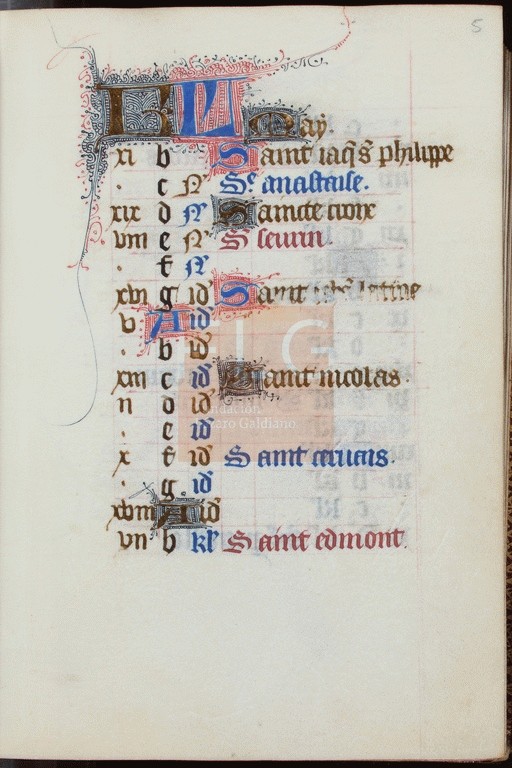 5
KL May.
xi b Saint iaq̃s philippe
. c N Se anastaise.
xix d N Saincte croix
viii e N S seurin.
. f N
xvi g id Saint latine
v A id
. b id
xiii c id Saint nicolas.
ii d id
. e id
x f id Saint ceruais.
. g id
xviii A id
vii b kl Saint edmont.
Fundación
Lázaro Galdiano